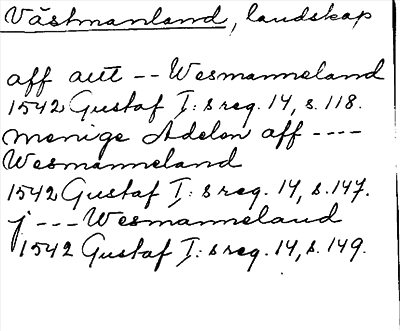 Västmanland, landskap
aff alt -- Wesmanneland
1542 Gustaf I:s reg. 14, s. 118.
menige Adelen aff ----
Wesmanneland
1542 Gustaf I:s reg. 14, s. 147.
j --- Wesmanneland
1542 Gustaf I:s reg. 14, s. 149.